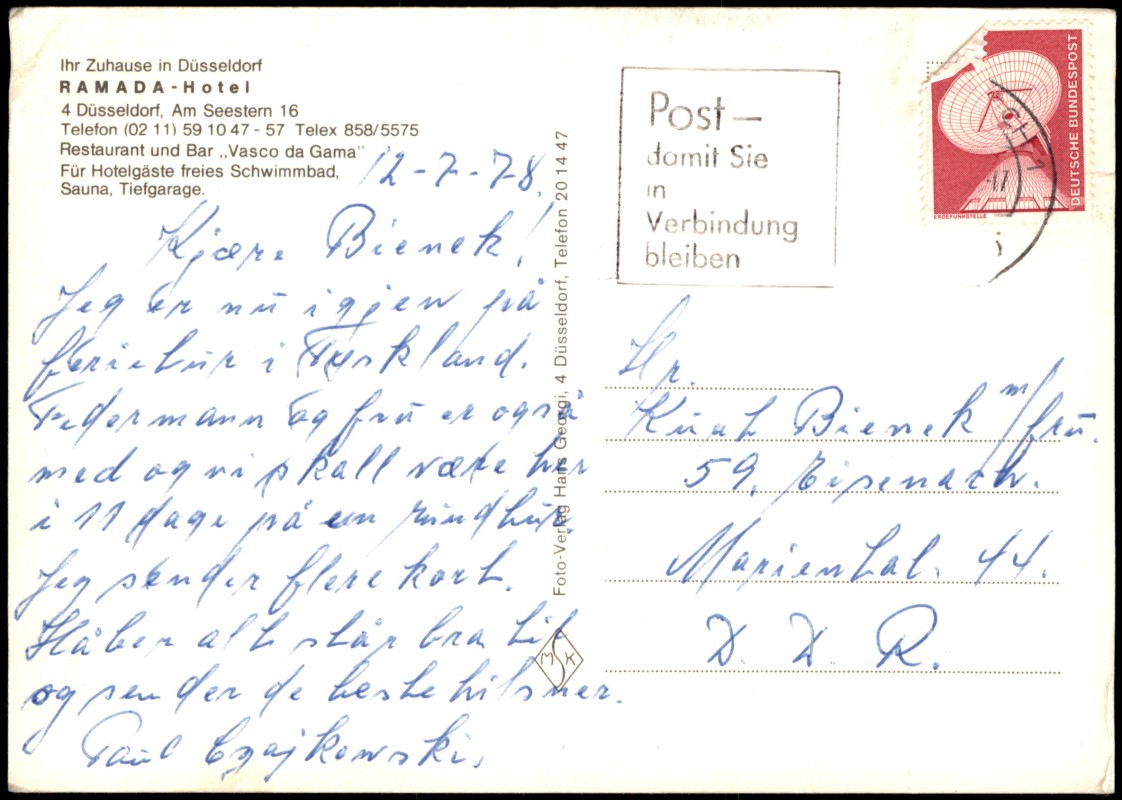 Ihr Zuhause in Düsseldorf
RAMADA-Hotel
4 Düsseldorf, Am Seestern 16
Telefon (02 11) 59 10 47 - 57 Telex 858/5575
Restaurant und Bar „Vasco da Gama"
Für Hotelgäste freies Schwimmbad,
Sauna, Tiefgarage.
12-7-78.
Kjære Bienek!
Jeg er nu igjen på
ferietur i Tyskland.
Federmann og fru er også
med og vi skall være her
i 11 dage på en rundtur.
Jeg sender flere kort.
Håber alt står bra til
og sender de beste hilsner.
Paul Czajkowski.
Foto-Verlag Hans Georgi, 4 Düsseldorf, Telefon 20 14 47
MSK
Post –
damit Sie
in
Verbindung
bleiben
DEUTSCHE BUNDESPOST
ERDEFUNKSTELLE
CH 1
Hr.
Kurt Bienek m/fru.
59, Eisenach.
Mariental. 44.
D. D. R.